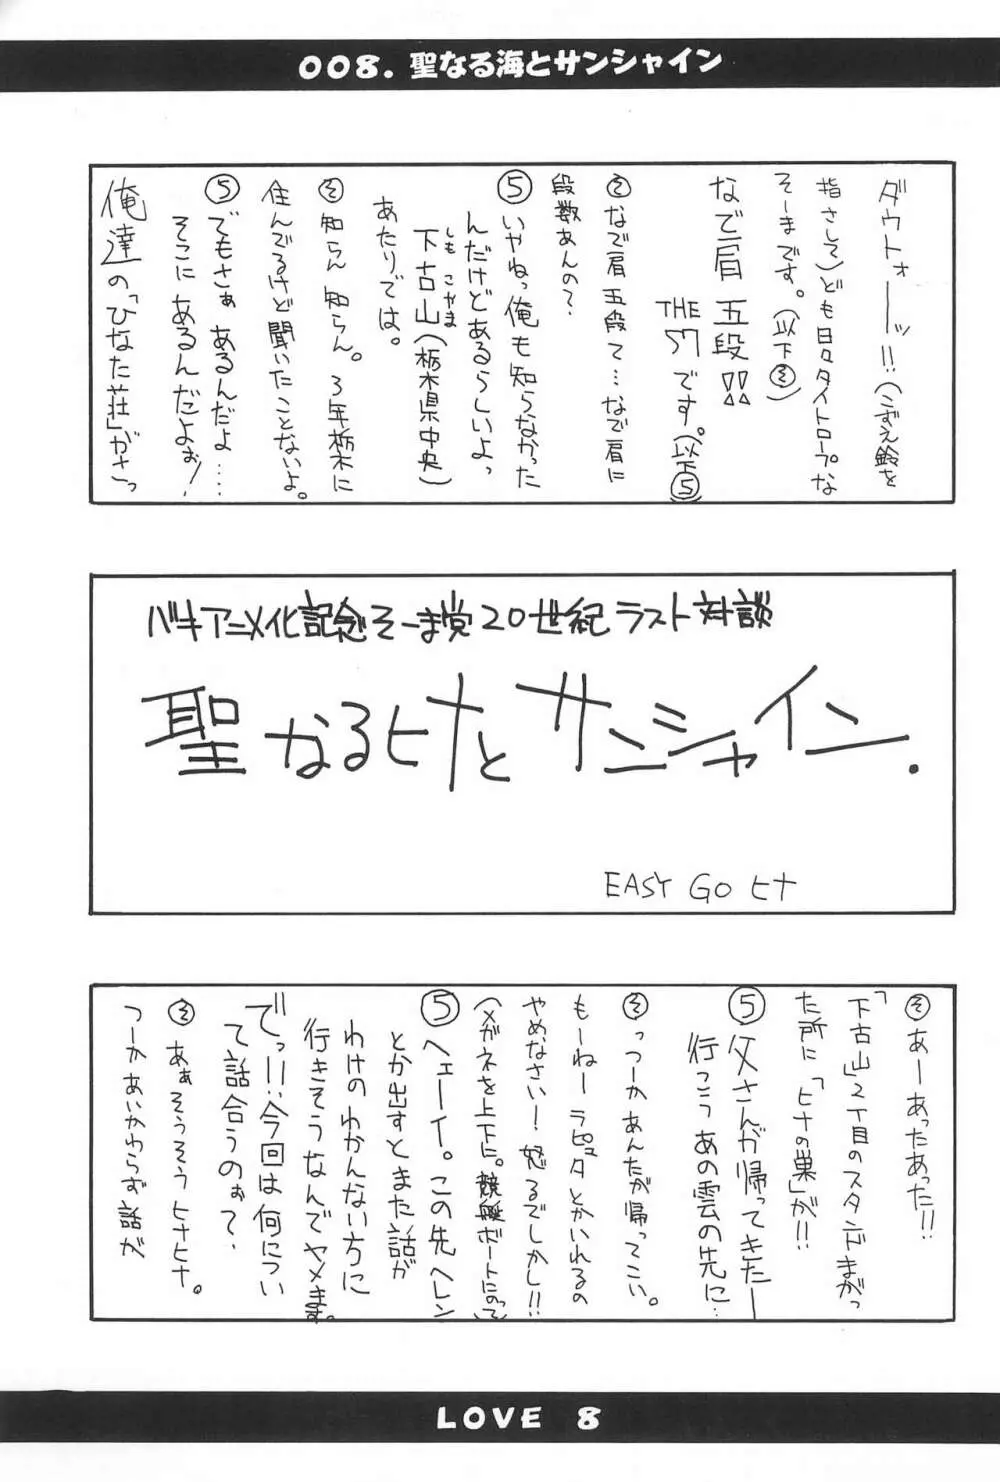 008. 聖なる海とサンシャイン
ダウトォーーッ!!(こずえ鈴を
指さして)ども日々タイトロープな
そーまです。(以下そ)
なで肩 五段!!
THE 57です。(以下5)
そ なで肩五段て…なで肩に
段数あんの?
5 いやねっ俺も知らなかった
んだけどあるらしいよっ
下古山(栃木県中央)
しも こやま
あたりでは。
そ 知らん知らん。3年栃木に
住んでるけど聞いたことないよ。
5 でもさぁあるんだよ……
そこにあるんだよぉ!
俺達の「ひなた荘」がさっ
バキアニメ化記念そーま党20世紀ラスト対談
聖なるヒナとサンシャイン.
EASY GO ヒナ
そ あーあったあった!!
「下古山」2丁目のスタンドまがっ
た所に「ヒナの巣」が!!
5 父さんが帰ってきたー
行こうあの雲の先に…
そ っつーかあんたが帰ってこい。
もーねーラピュタとかいれるの
やめなさい!怒るでしかし!!
(メガネを上下に。競艇ボートにのって)
5 ヘェーイ。この先ヘレン
とか出すとまた話が
わけのわかんない方に
行きそうなんでヤメます。
でっ!!!今回は何につい
て話合うのぉ?
そ あぁそうそうヒナヒナ。
つーかあいかわらず話が
LOVE 8